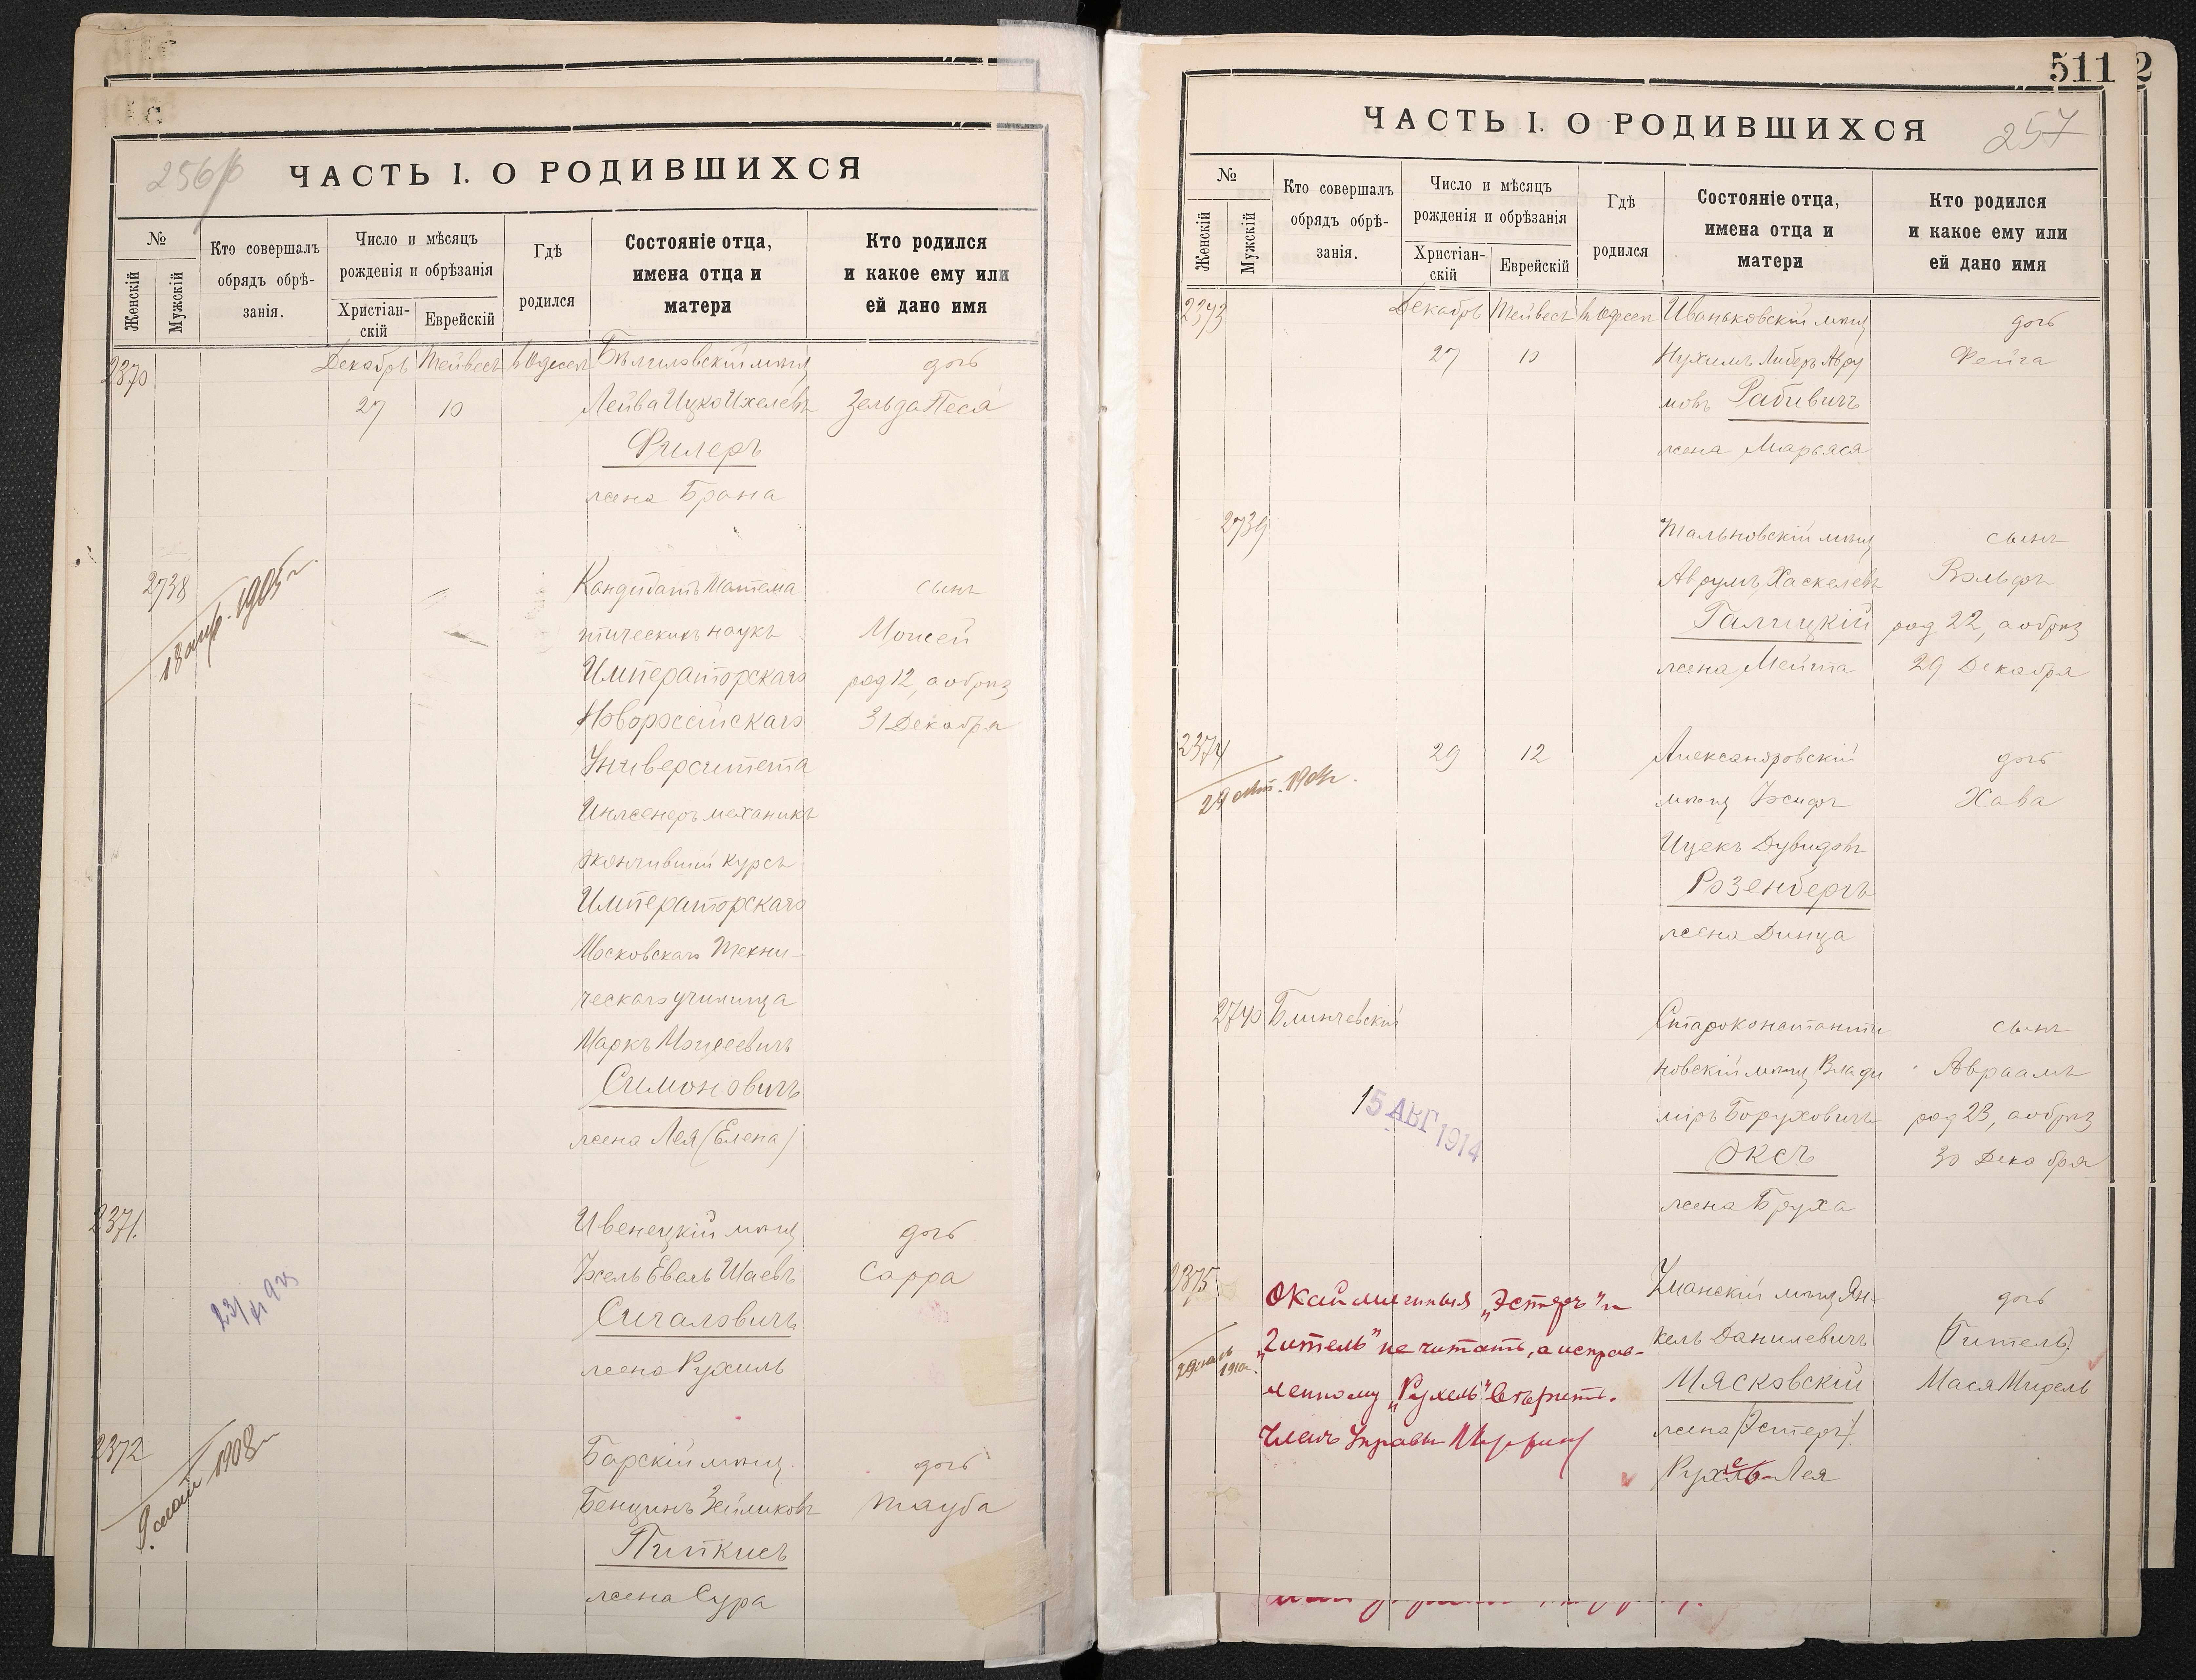 256/б
ЧАСТЬ I. О РОДИВШИХСЯ
№
Женскій
Мужскій
Кто совершалъ
обрядъ обрѣ-
занія.
Число и мѣсяцъ
рожденія и обрѣзанія
Христіан-
скій
Еврейскій
Гдѣ
родился
Состояніе отца,
имена отца и
матери
Кто родился
и какое ему или
ей дано имя
2370
Декабрь Тейвесъ въ Одессѣ мѣщ дочь
27 10 Лейва Ицко Ихелевъ Зельда Песя
Филеръ
жена Брана
2738
18 апр. 1905 г.
Кандидатъ Матема сынъ
тическихъ наукъ Моисей
Императорскаго род 12, а обрѣз
Новороссійскаго 31 Декабря
Университета
Инженеръ механикъ
окончившій курсъ
Императорскаго
Московскаго Техни-
ческаго училища
Маркъ Моисеевичъ
Симоновичъ
жена Лея (Елена)
2371.
Ивенецкій мѣщ дочь
Хсель Евель Шаевъ Сарра
Сигаловичъ
жена Рухиль
2372
9. 1908 г
Барскій мѣщ. дочь
Бенционъ Зейликовъ Тауба
Питкисъ
жена Сура
511 2
257
ЧАСТЬ I. О РОДИВШИХСЯ
№
Женскій
Мужскій
Кто совершалъ
обрядъ обрѣ-
занія.
Число и мѣсяцъ
рожденія и обрѣзанія
Христіан-
скій
Еврейскій
Гдѣ
родился
Состояніе отца,
имена отца и
матери
Кто родился
и какое ему или
ей дано имя
2373
Декабрь Тейвесъ въ Одессѣ Иваньковскій мѣщ дочь
27 10 Нухимъ Либеръ Авру Фейга
мовъ Рабивичъ
жена Марьяся
2739
Тальновскій мѣщ сынъ
Аврумъ Хаскелевъ Вольфъ
Галицкій род 22, а обрѣз
жена Мейта 29 Декабря
2374
29 12 Александровскій дочь
мѣщ Хава
Ицекъ Дувидовъ
Розенбергъ
жена Динца
2740 Блинчевскій Староконстанти сынъ
новскій мѣщ Влади Авраамъ
міръ Боруховичъ род 23, а обрѣз
Эксъ 30 Декабря
жена Бруха
15 АВГ 1914
2375
Уманскій мѣщ Ян- дочь
кель Данилевичъ (Гитель)
Мясковскій Мася Мирель
жена (Эстеръ)
Рухель-Лея
Окаймленныя „Эстеръ" и
„Гитель" не читать, а исправ-
ленному „Рухель" вѣрить.
Членъ Управы